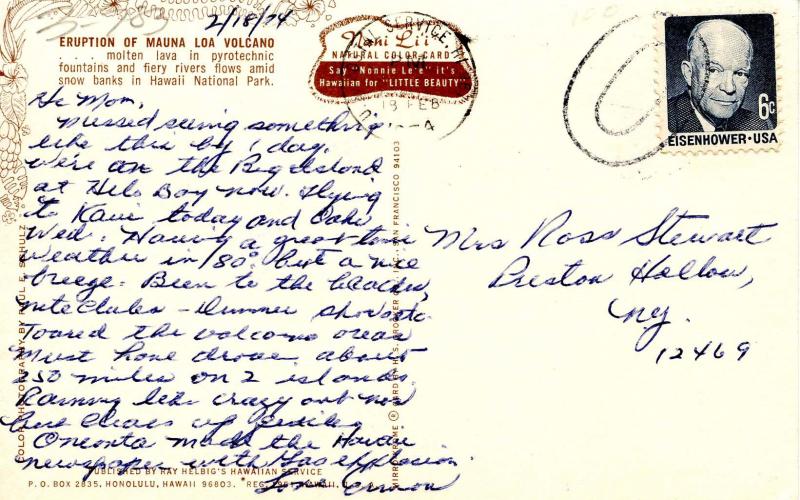 2/18/74
ERUPTION OF MAUNA LOA VOLCANO
. . . . molten lava in pyrotechnic
fountains and fiery rivers flows amid
snow banks in Hawaii National Park.
Nani Li'i
NATURAL COLOR CARD
Say "Nonnie Le'e" it's
Hawaiian for "LITTLE BEAUTY"
18 FEB
6c
EISENHOWER·USA
Hi Mom,
Missed seeing something
like this by 1 day.
We're on the Big Island
at Hilo Bay now. Flying
to Kaui today and Oahu
Wed. Having a great time
weather in 80° but a nice
breeze. Been to the beaches,
niteclubs - Dinner shows etc.
Toured the volcano areas
Must have drove about
250 miles on 2 islands.
Raining like crazy out now
but clears up
Oneonta made the Hawaii
newspaper with Gas explosion.
Love
Mrs Ross Stewart
Preston Hollow,
NY.
12469
COLOR PHOTOGRAPHY BY PAUL E. SCHULZ
SAN FRANCISCO 94103
PUBLISHED BY RAY HELBIG'S HAWAIIAN SERVICE
P. O. BOX 2835, HONOLULU, HAWAII 96803.